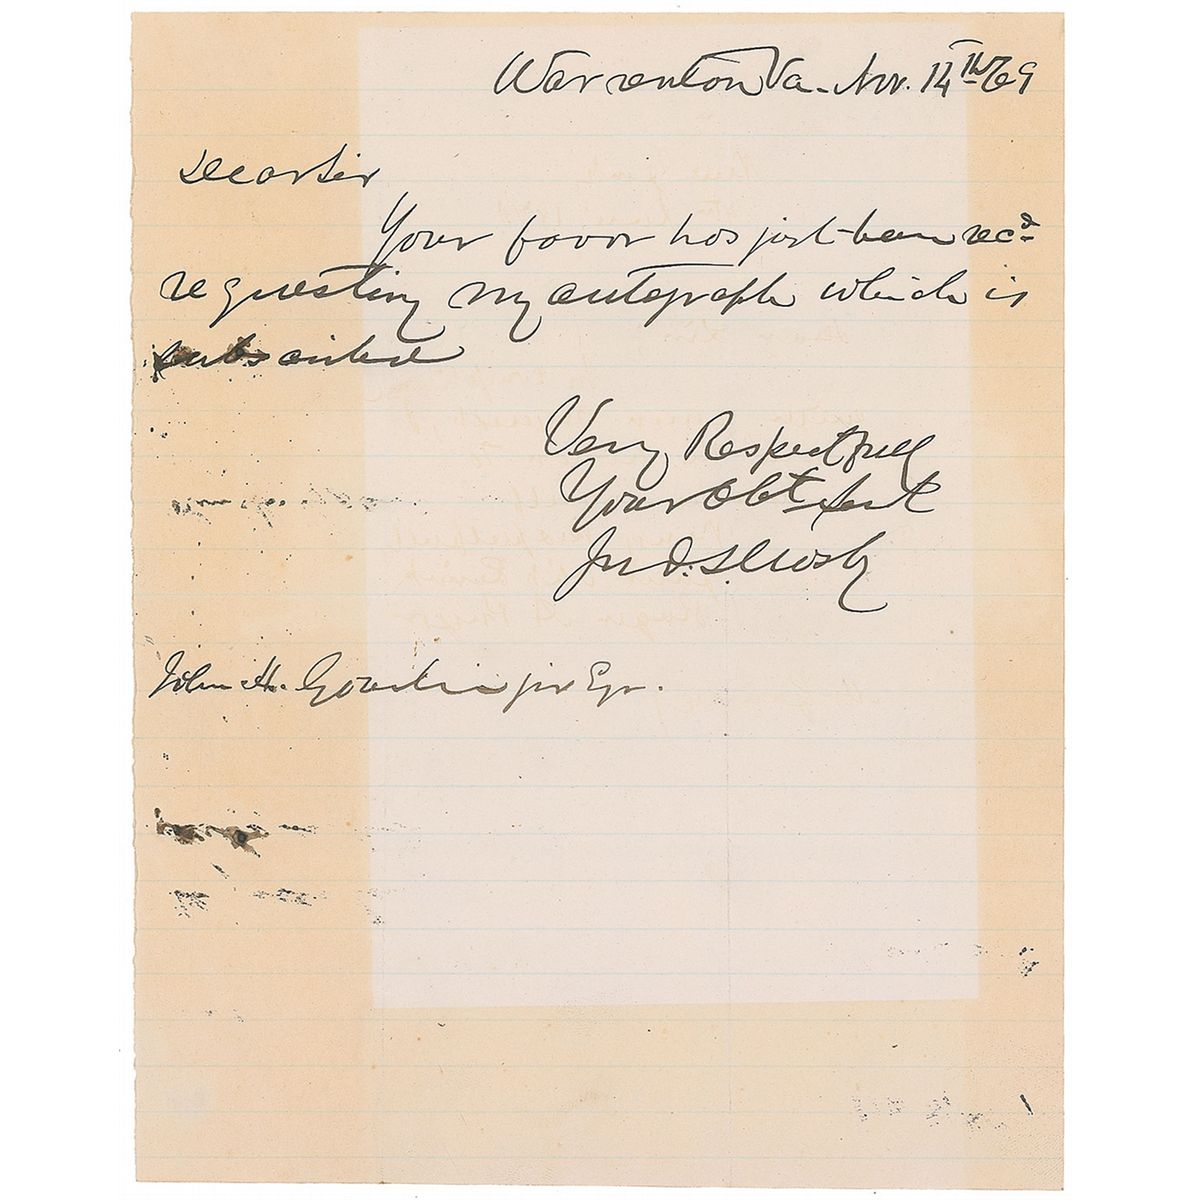 Warrenton Va. Nov. 14th /69
Dear Sir
Your favor has just been recd
requesting my autograph which is
subscribed
Very Respectfull
Your Obt Servt
Jno. S. Mosby
John H. jr Esqr.